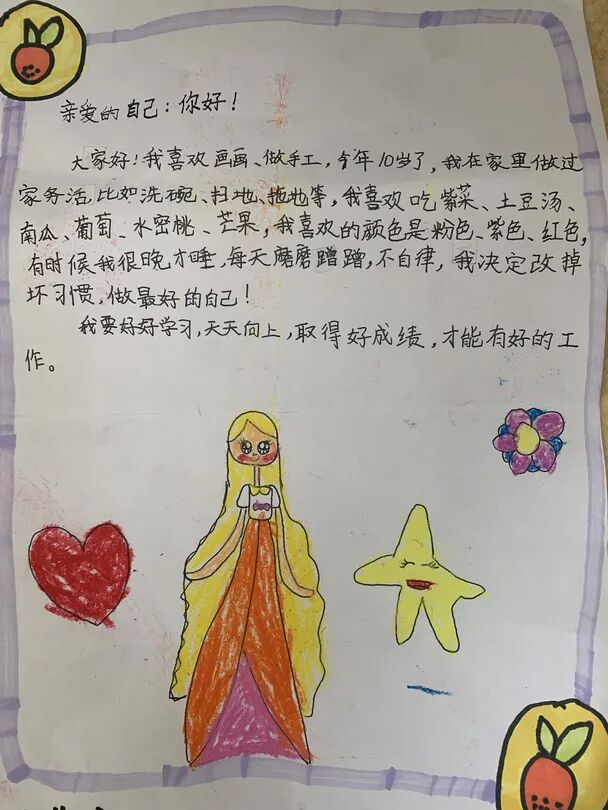 亲爱的自己：你好！
大家好！我喜欢画画、做手工，今年10岁了，我在家里做过
家务活，比如洗碗、扫地、拖地等，我喜欢吃紫菜、土豆汤、
南瓜、葡萄、水密桃、芒果，我喜欢的颜色是粉色、紫色、红色，
有时候我很晚才睡，每天磨磨蹭蹭，不自律，我决定改掉
坏习惯，做最好的自己！
我要好好学习，天天向上，取得好成绩，才能有好的工
作。